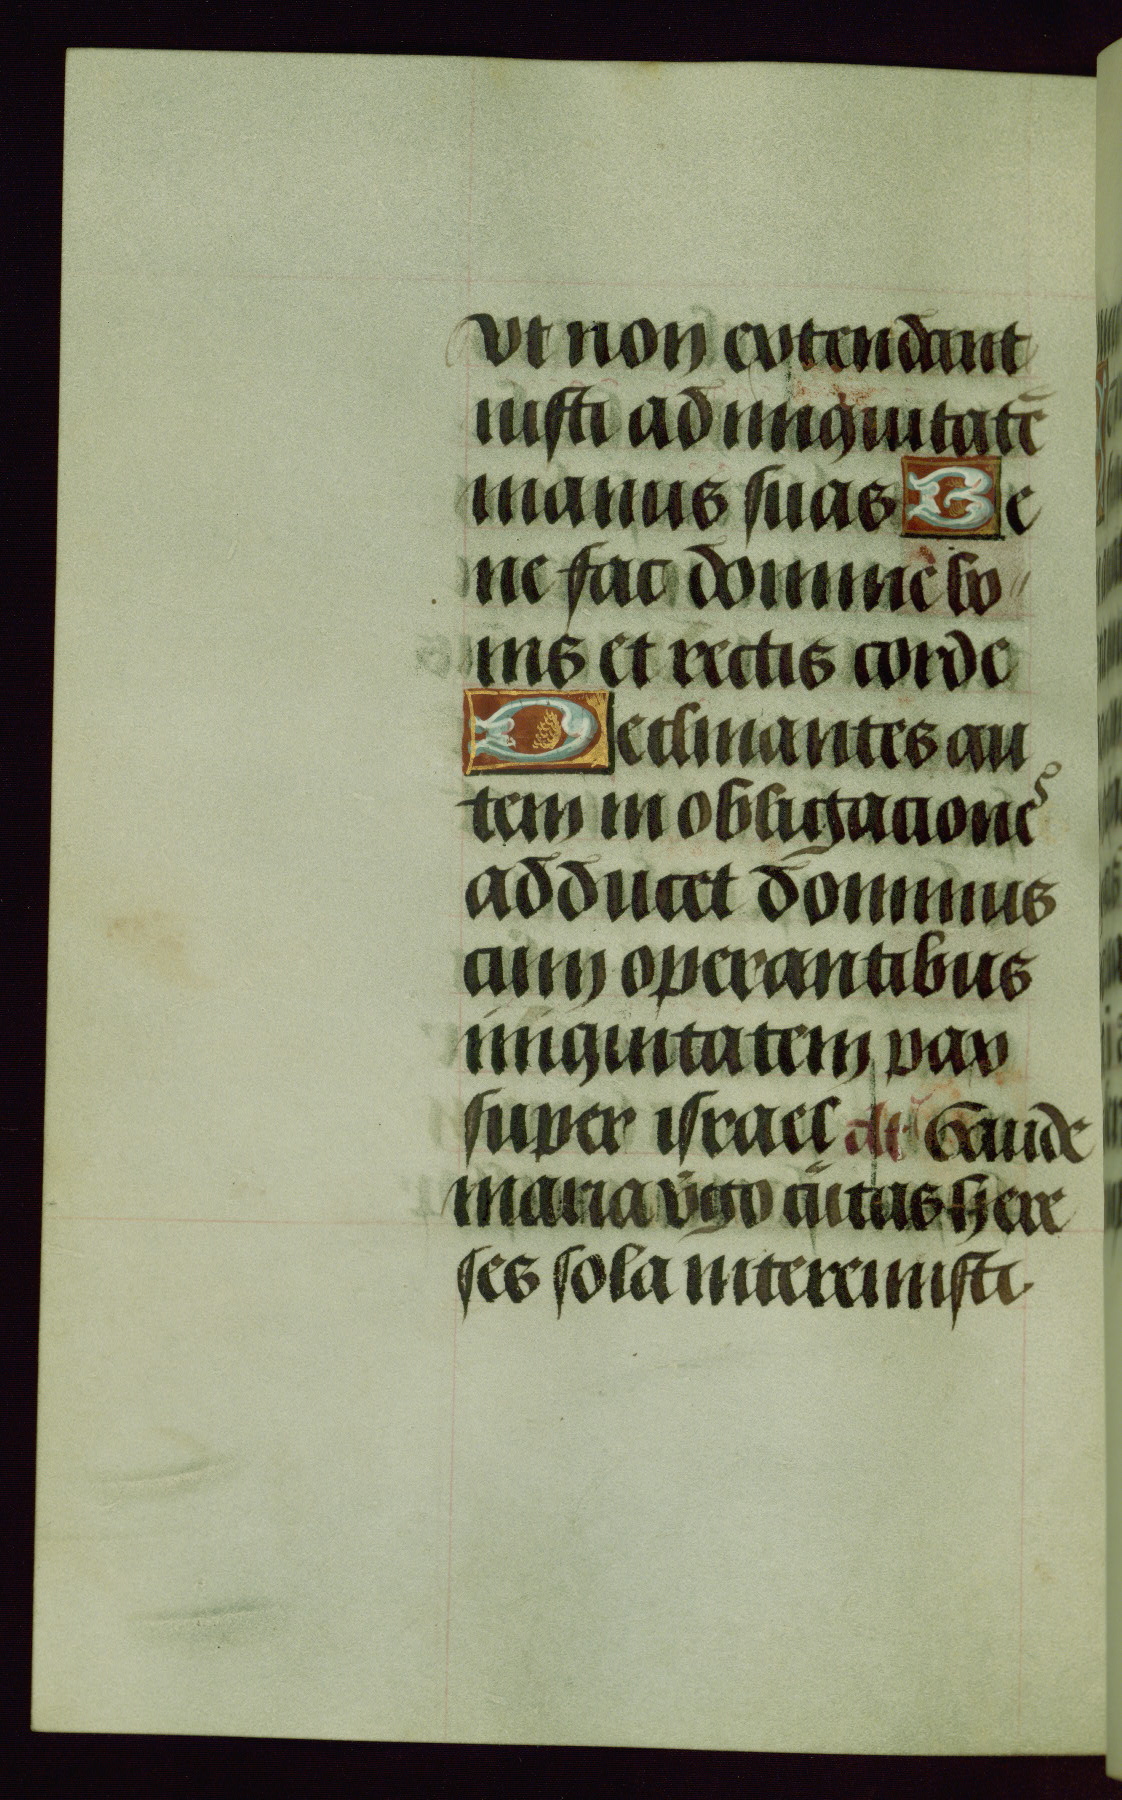 vt non extendant
iusti ad iniquitatē
manus suas Be
ne fac domine bo
nis et rectis corde
Declinantes au
tem in obligacione
adducet dominus
cum operantibus
iniquitatem pax
super israel añ Gaude
maria v̄go cūctas here
ses sola interemisti